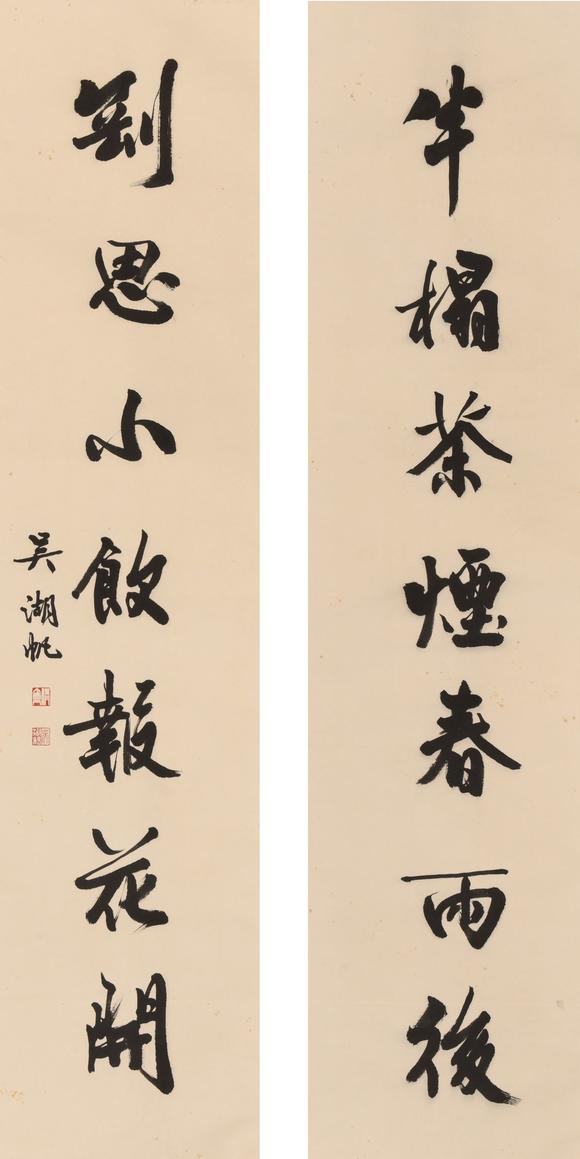 半榻茶煙春雨後
剛思小飲報花開
吳湖帆